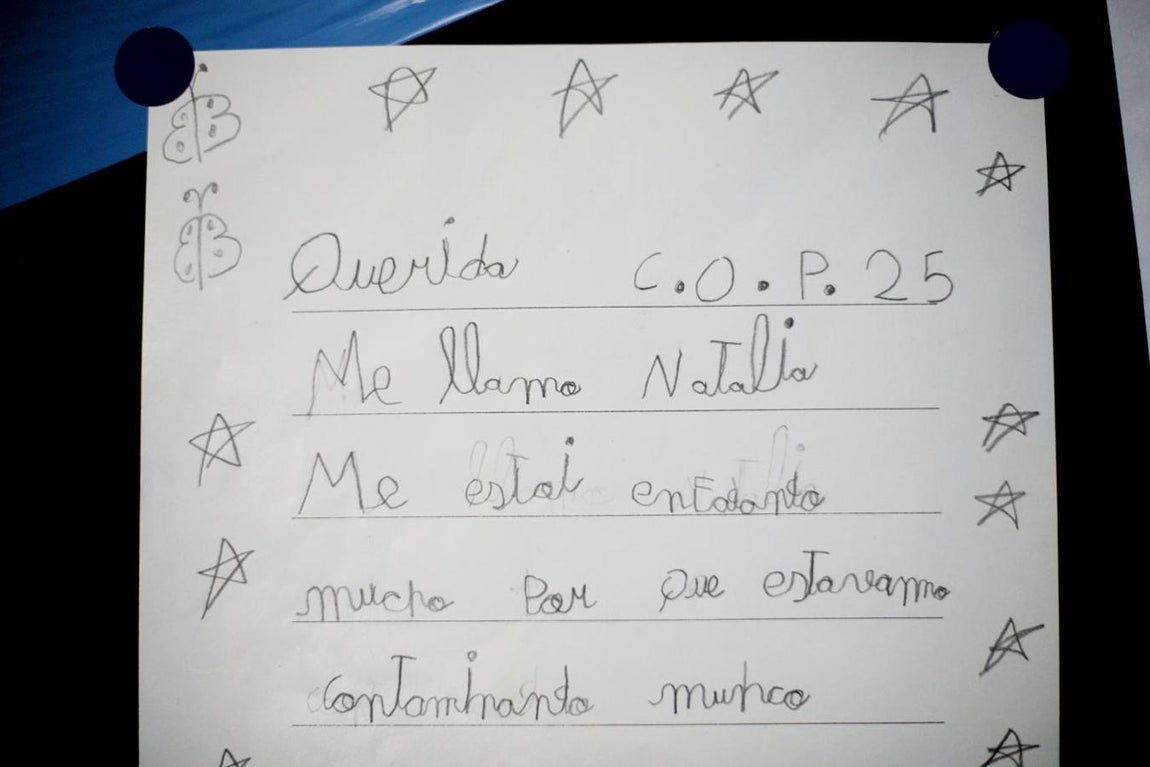 Querida C.O.P. 25
Me llamo Natalia
Me estoi enfadanto
mucho por que estavamo
contaminanto munhco